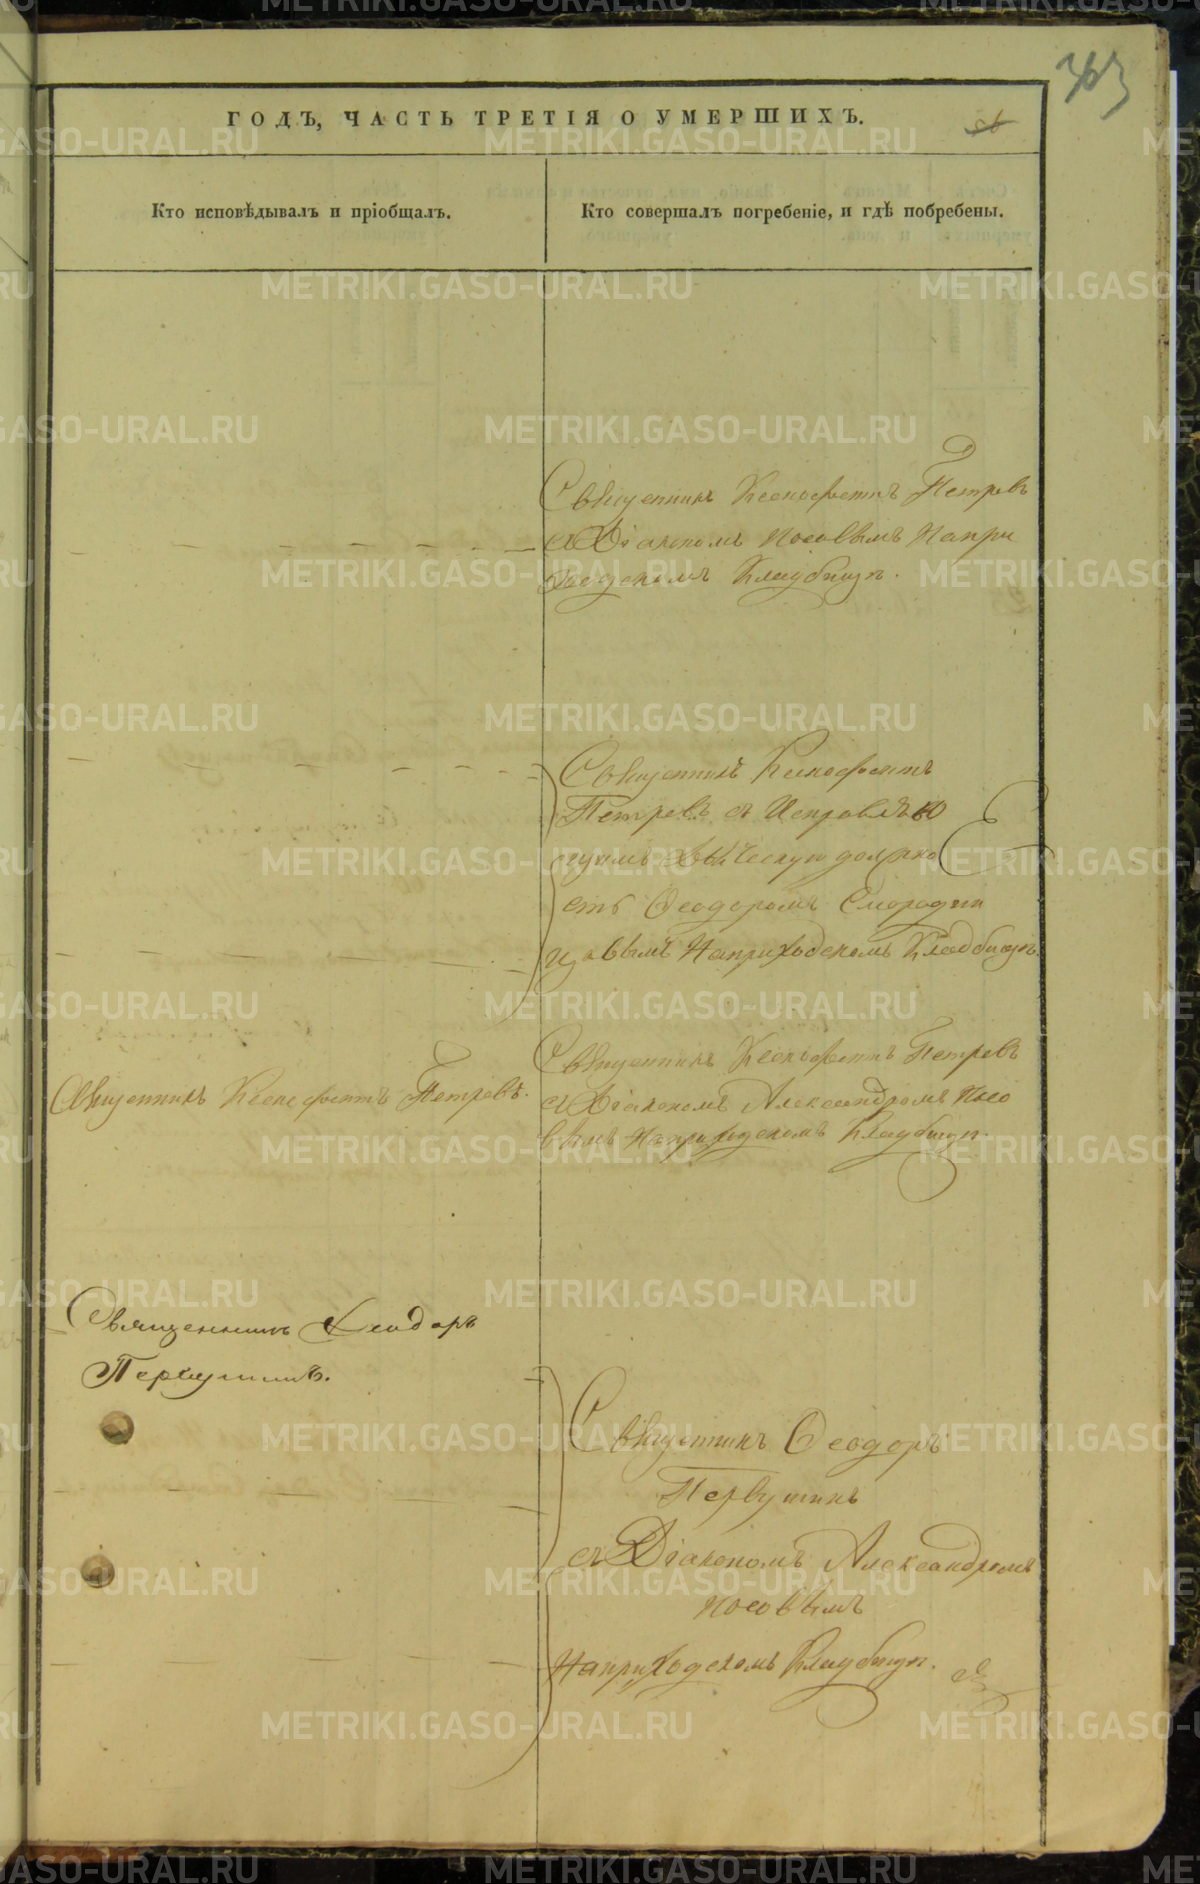 363
ГОДЪ, ЧАСТЬ ТРЕТІЯ О УМЕРШИХЪ.
Кто исповѣдывалъ и пріобщалъ.
Кто совершалъ погребеніе, и гдѣ побребены.
Священникъ Ксенофонтъ Петровъ
съ Діакономъ Носовымъ На при
ходскомъ Кладбищѣ.
Священникъ Ксенофонтъ
Петровъ съ Исправляю
щимъ должно
сть Ѳеодоромъ Смородин
цовымъ На приходскомъ Кладбищѣ.
Священникъ Ксенофонтъ Петровъ.
Священникъ Ксенофонтъ Петровъ
съ Діакономъ Александромъ Носо
вымъ На приходскомъ Кладбищѣ.
Священникъ Ѳеодоръ
Первушинъ.
Священникъ Ѳеодоръ
Первушинъ
съ Діакономъ Александромъ
Носовымъ
На приходскомъ Кладбищѣ.
METRIKI.GASO-URAL.RU